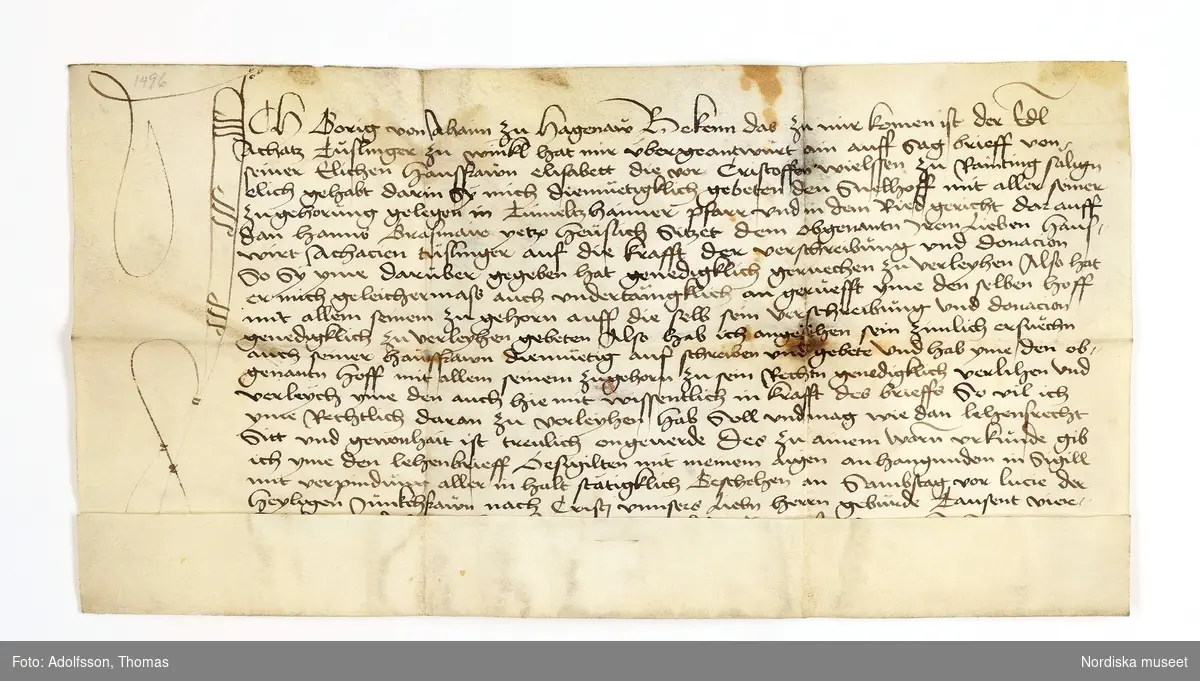 1496
ICH Gorig von Ahaim zu Hagenaw Bekenn das zu mir komen ist der Edl
Achatz Tuslinger zu winkl hat mir ubergeantwurt ain auff Sag brieff von
seiner Elichen Hausfrawn elisabett die vor Cristoffen zu Ranting salign
elich gehabt darin Sy mich diemuetigklich gebeten den Suelhoff mit aller seiner
zugehorung gelegen in pfarr und in dem Ried gericht dar auff
dan Hanns yetzo Heuslich Sitzet dem obgenantn Irem Lieben Haus-
wirt sachacien tuslinger auf die krafft der verschreibung und donacion
So Sy yme daruber gegeben hat genedigklich geruechen zu verleyhen Also hat
er mich geleichermass auch undertaingklich an gerufft yme den selben Hoff
mit allem seinem zu gehorn auff die selb sein verschreibung und donacion
genedigklich zu verleyhen gebeten Also hab ich angesehen sein zimlich ersuechn
auch seiner hausfrawn diemuetig auf schreiben und gebete und hab yme den ob-
genantn Hoff mit allem seinem zugehorn zu sein Rechtn genedigklich verlihen und
verleych yme den auch hie mit wissentlich in krafft des brieffs So vil ich
yme Rechtlich daran zu verleyhen hab Soll und mag wie dan lehensrecht
Sitt und gewonhait ist treulich ongeverde Des zu ainem warn urkunde gib
ich yme den lehenbrieff Besigilten mit meinem aigen anhangunden in Sigill
mit verpindung aller in halt statigklich Beschehen an Sambstag vor lucie der
Heyligen Junckhfrawn nach Cristi unnsers Liebn herrn geburde Tausent vier-
Foto: Adolfsson, Thomas
Nordiska museet